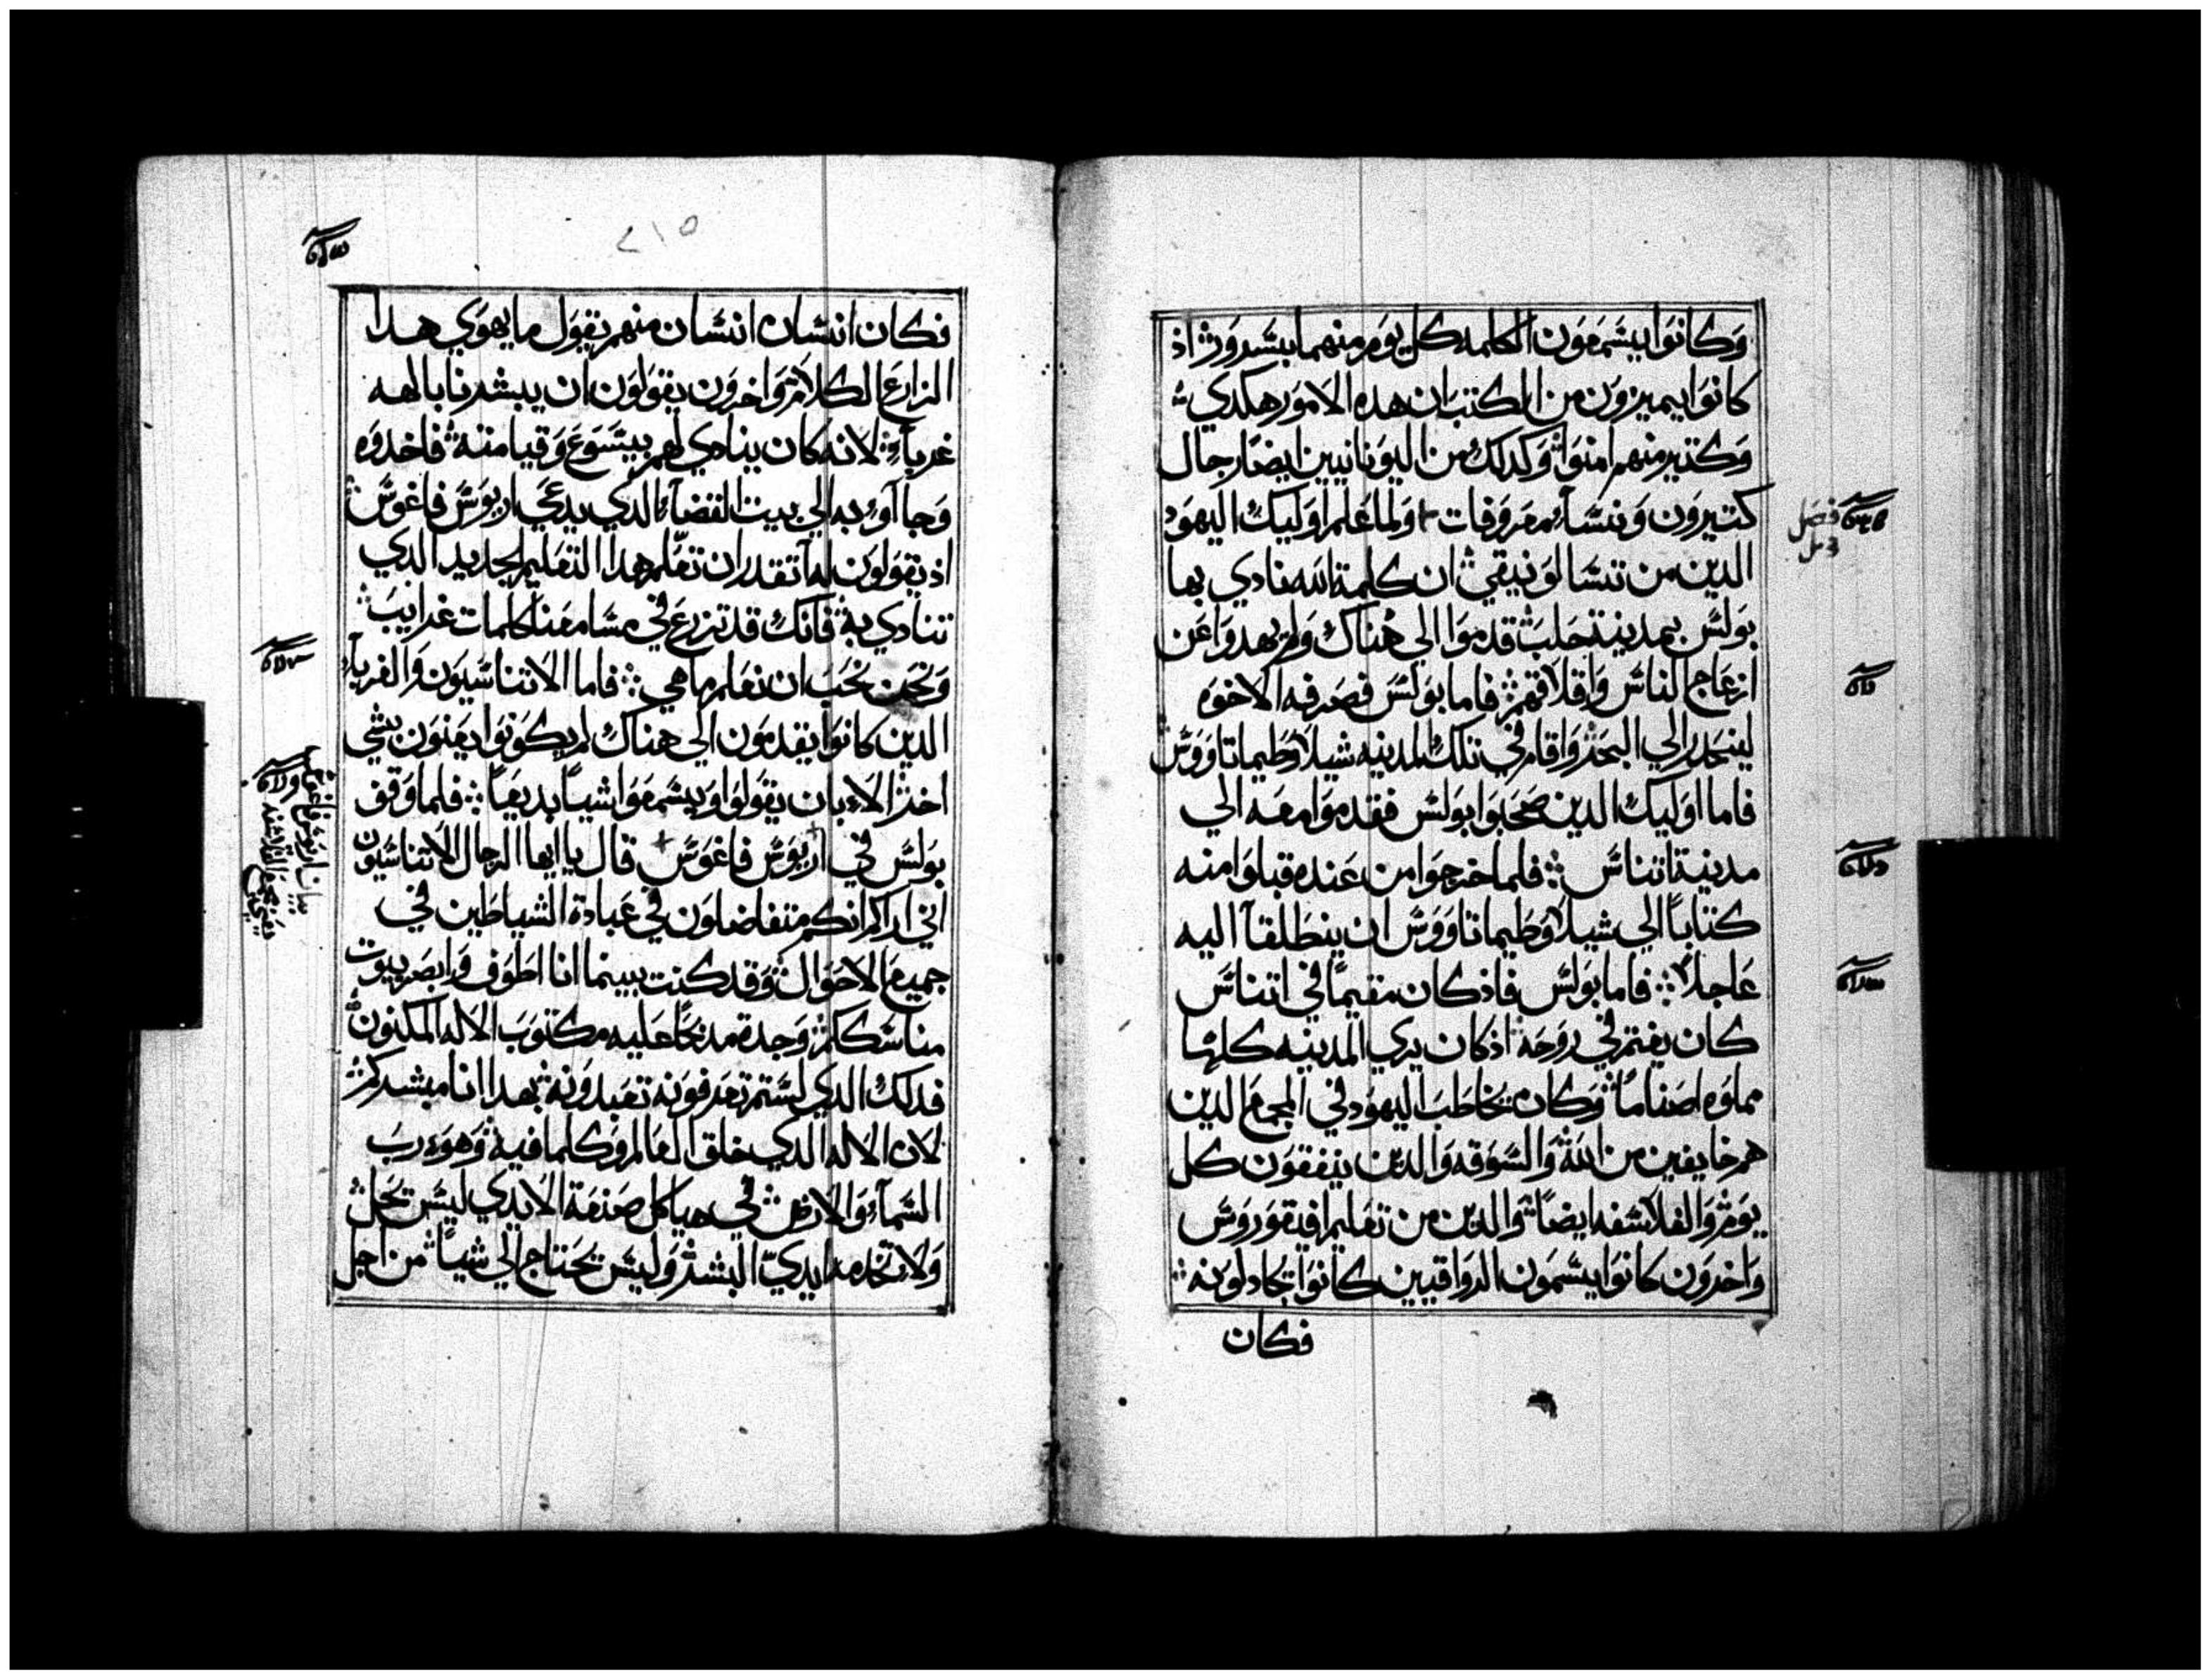 وكانوا يسمعون الكلمه كل يوم منهما بسرور اذ
كانوا يميزون من الكتب ان هده الامور هكدي
وكتير منهم امنوا وكدلك من اليونانيين ايضا رجال
كتيرون ونسآء معروفات ولما علم اوليك اليهود
الدين من تسالونيقي ان كلمة الله نادي بها
بولس بمدينة حلب قدموا الي هناك ولم يهدوا عن
ازعاج الناس واقلاقهم فاما بولس فصرفه الاخوه
لينحدر الي البحر واقام في تلك المدينه شيلا وطيماتاووس
فاما اوليك الدين صحبوا بولس فقدموا معه الي
مدينة اتناس فلما خرجوا من عنده قبلوا منه
كتاباً الي شيلا وطيماتاووس ان ينطلقآ اليه
عاجلاً فاما بولس فاذ كان مقيماً في اتناس
كان يغتم في روحه اذ كان يري المدينه كلها
مملوه اصناماً وكان يخاطب اليهود في المجمع الدين
هم خايفين من الله والسوقه والدين يتفقون كل
يوم والفلاسفه ايضاً والدين من تعليم افيقوروس
واخرون كانوا يسمون الرواقيين كانوا يجادلونه
فكان
فصل
٢١٥
فكان انسان انسان منهم يقول ما يهوي هدا
الزارع الكلام واخرون يقولون ان يبشرنا بالهه
غربآء لانه كان ينادي لهم بيسوع وقيامته فاخدوه
وجاآوء به الي بيت القضآء الدي يدعي اريوس فاغوس
اذ يقولون له آتقدر ان تعلم هدا التعليم الجديد الدي
تنادي به فانك قد تزرع في مسامعنا كلمات غرايب
ونحن نحب ان نعلم ما هي فاما الاتناسيون والغربآء
الدين كانوا يقدمون الي هناك لم يكونوا يعنون بشي
اخر الا بان يقولوا ويسمعوا شياً بديعاً فلما وقف
بولس في اريوس فاغوس قال يا ايها الرجال الاتناسيون
اني اراكم انكم متفاضلون في عبادة الشياطين في
جميع الاحوال وقد كنت بينما انا اطوف وابصر بيوت
مناسككم وجدة مدبحاً عليه مكتوب الاله المكنون
فدلك الدي لستم تعرفونه تعبدونه بهدا انا مبشركم
لان الاله الدي خلق العالم وكلما فيه وهو رب
السمآء والارض في هياكل صنعة الايدي ليس يحل
ولا تخدمه ايدي البشر وليس يحتاج الي شياً من اجل